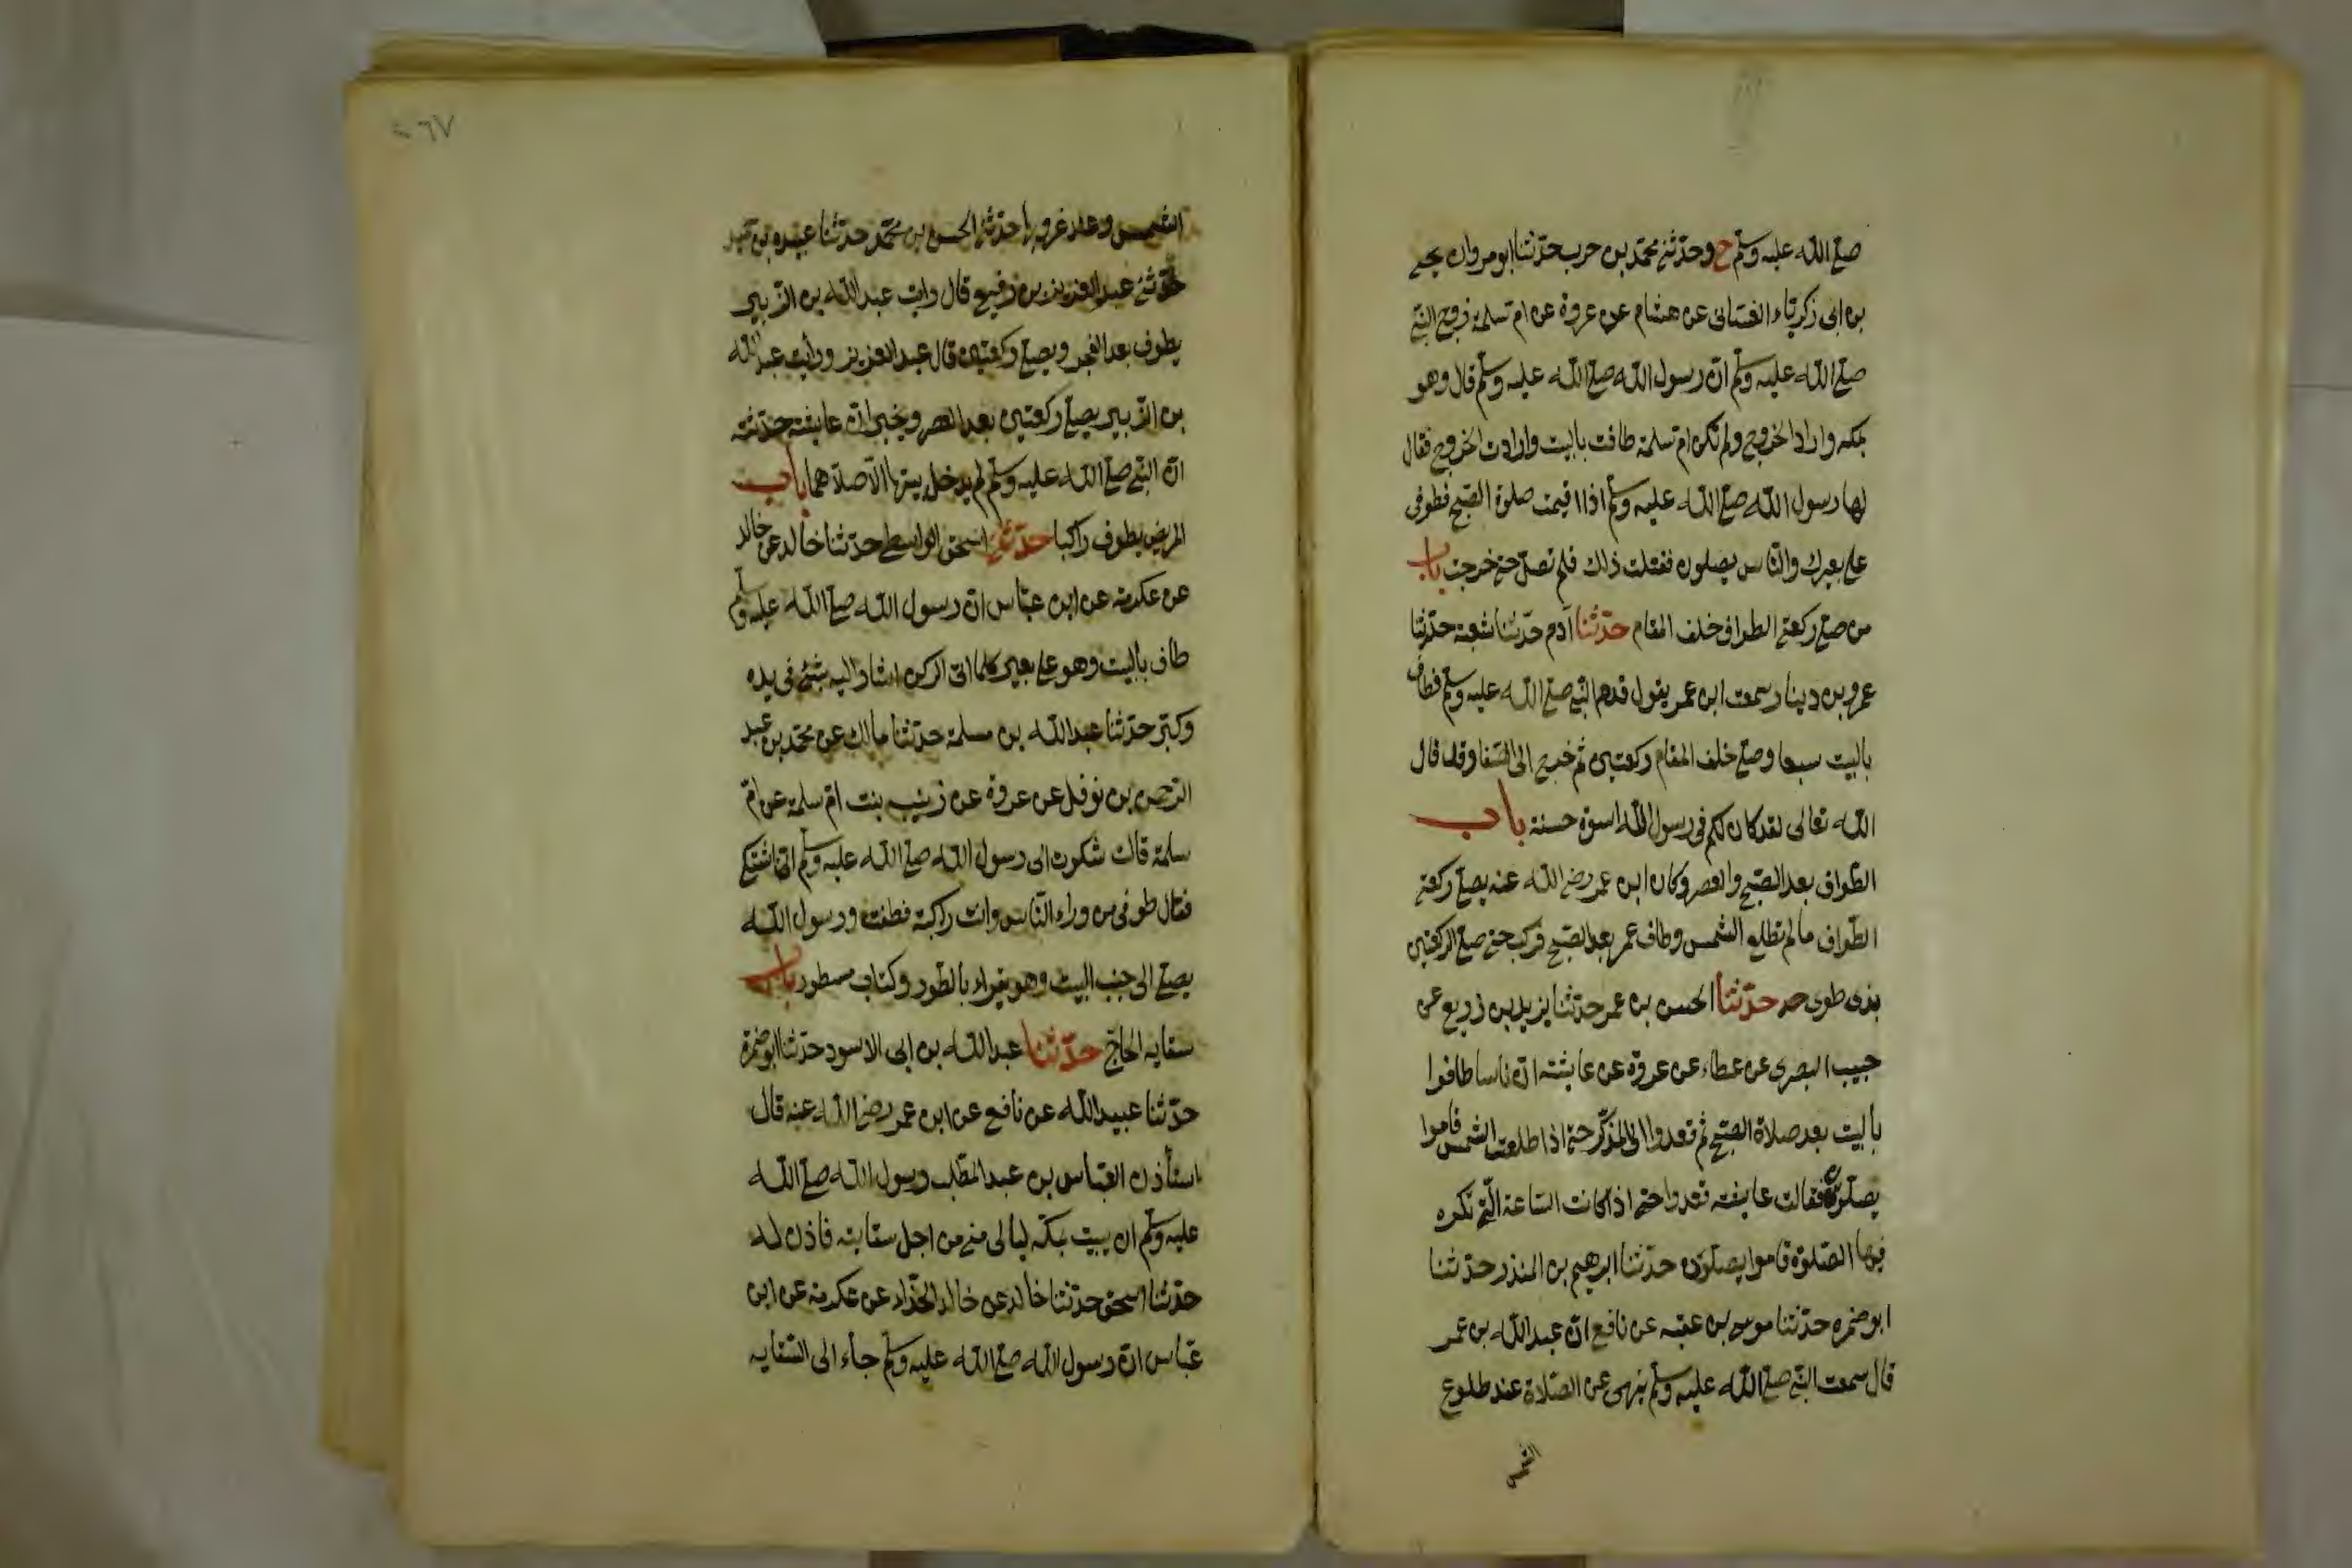 صلى الله عليه وسلم ح وحدثني محمد بن حرب حدثنا ابو مروان يحيى
بن ابي زكرياء الغساني عن هشام عن عروة عن ام سلمة زوج النبي
صلى الله عليه وسلم ان رسول الله صلى الله عليه وسلم قال وهو
بمكه واراد الخروج ولم تكن ام سلمة طافت بالبيت وارادت الخروج فقال
لها رسول الله صلى الله عليه وسلم اذا اقيمت صلوة الصبح فطوفى
على بعيرك والناس يصلون ففعلت ذلك فلم تصل حتى خرجت باب
من صلى ركعتي الطواف خلف المقام حدثنا آدم حدثنا شعبة حدثنا
عمرو بن دينار سمعت ابن عمر يقول قدم النبي صلى الله عليه وسلم فطاف
بالبيت سبعا وصلى خلف المقام ركعتين ثم خرج الى الصفا وقد قال
الله تعالى لقد كان لكم فى رسول الله اسوة حسنة باب
الطواف بعد الصبح والعصر وكان ابن عمر رضي الله عنه يصلى ركعتي
الطواف ما لم تطلع الشمس وطاف عمر بعد الصبح فركب حتى صلى الركعتين
بذى طوى حدثنا الحسن بن عمر حدثنا يزيد بن زريع عن
حبيب البصرى عن عطاء عن عروة عن عايشة ان ناسا طافوا
بالبيت بعد صلاة الصبح ثم قعدوا الى المذكر حتى اذا طلعت الشمس قاموا
يصلون فقالت عايشة قعدوا حتى اذا كانت الساعة التي تكره
فيها الصلوة قاموا يصلون حدثنا ابرهيم بن المنذر حدثنا
ابو ضمره حدثنا موسى بن عقبه عن نافع ان عبد الله بن عمر
قال سمعت النبي صلى الله عليه وسلم ينهى عن الصلاة عند طلوع
الشمس
٢٦٧
الشمس وعند غروبها حدثني الحسن بن محمد حدثنا عبيده بن حميد
حدثني عبد العزيز بن رفيع قال رايت عبد الله بن الزبير
يطوف بعد الفجر ويصلى ركعتين قال عبد العزيز ورايت عبد الله
بن الزبير يصلى ركعتين بعد العصر ويخبر ان عايشة حدثته
ان النبي صلى الله عليه وسلم لم يدخل بيتها الا صلاهما باب
المريض يطوف راكبا حدثني اسحق الواسطي حدثنا خالد عن خالد
عن عكرمة عن ابن عباس ان رسول الله صلى الله عليه وسلم
طاف بالبيت وهو على بعير كلما اتى الركن اشار اليه بشئ فى يده
وكبر حدثنا عبد الله بن مسلمة حدثنا مالك عن محمد بن عبد
الرحمن بن نوفل عن عروة عن زينب بنت ام سلمة عن ام
سلمة قالت شكوت الى رسول الله صلى الله عليه وسلم اني اشتكي
فقال طوفى من وراء الناس وانت راكبة فطفت ورسول الله
يصلى الى جنب البيت وهو يقراء بالطور وكتاب مسطور باب
سقايه الحاج حدثنا عبد الله بن ابى الاسود حدثنا ابو ضمرة
حدثنا عبيد الله عن نافع عن ابن عمر رضي الله عنه قال
استأذن العباس بن عبد المطلب رسول الله صلى الله
عليه وسلم ان يبيت بمكة ليالى منى من اجل سقايته فاذن له
حدثنا اسحق حدثنا خالد عن خالد الحذاء عن عكرمة عن ابن
عباس ان رسول الله صلى الله عليه وسلم جاء الى السقايه